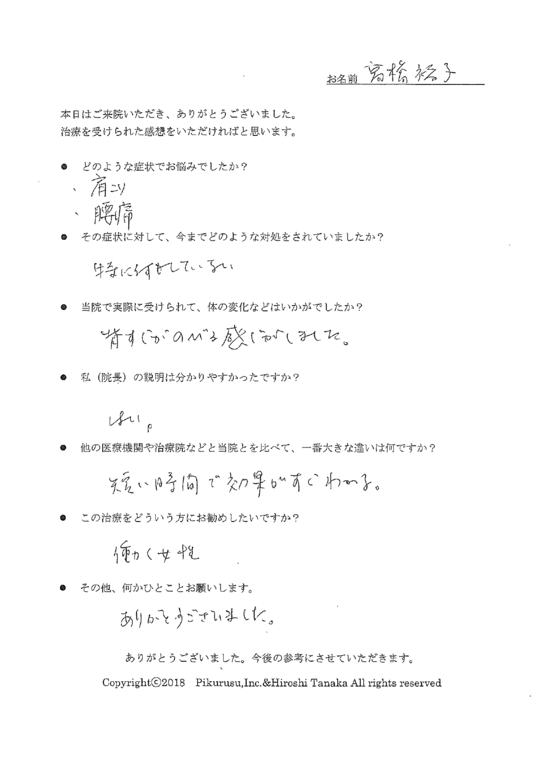 お名前 高橋裕子
本日はご来院いただき、ありがとうございました。
治療を受けられた感想をいただければと思います。
● どのような症状でお悩みでしたか？
、肩こり
、腰痛
● その症状に対して、今までどのような対処をされていましたか？
特に何もしていない
● 当院で実際に受けられて、体の変化などはいかがでしたか？
背すじがのびる感じがしました。
● 私（院長）の説明は分かりやすかったですか？
はい。
● 他の医療機関や治療院などと当院とを比べて、一番大きな違いは何ですか？
短い時間で効果がすぐわかる。
● この治療をどういう方にお勧めしたいですか？
働く女性
● その他、何かひとことお願いします。
ありがとうございました。
ありがとうございました。今後の参考にさせていただきます。
Copyright©2018 Pikurusu,Inc.&Hiroshi Tanaka All rights reserved